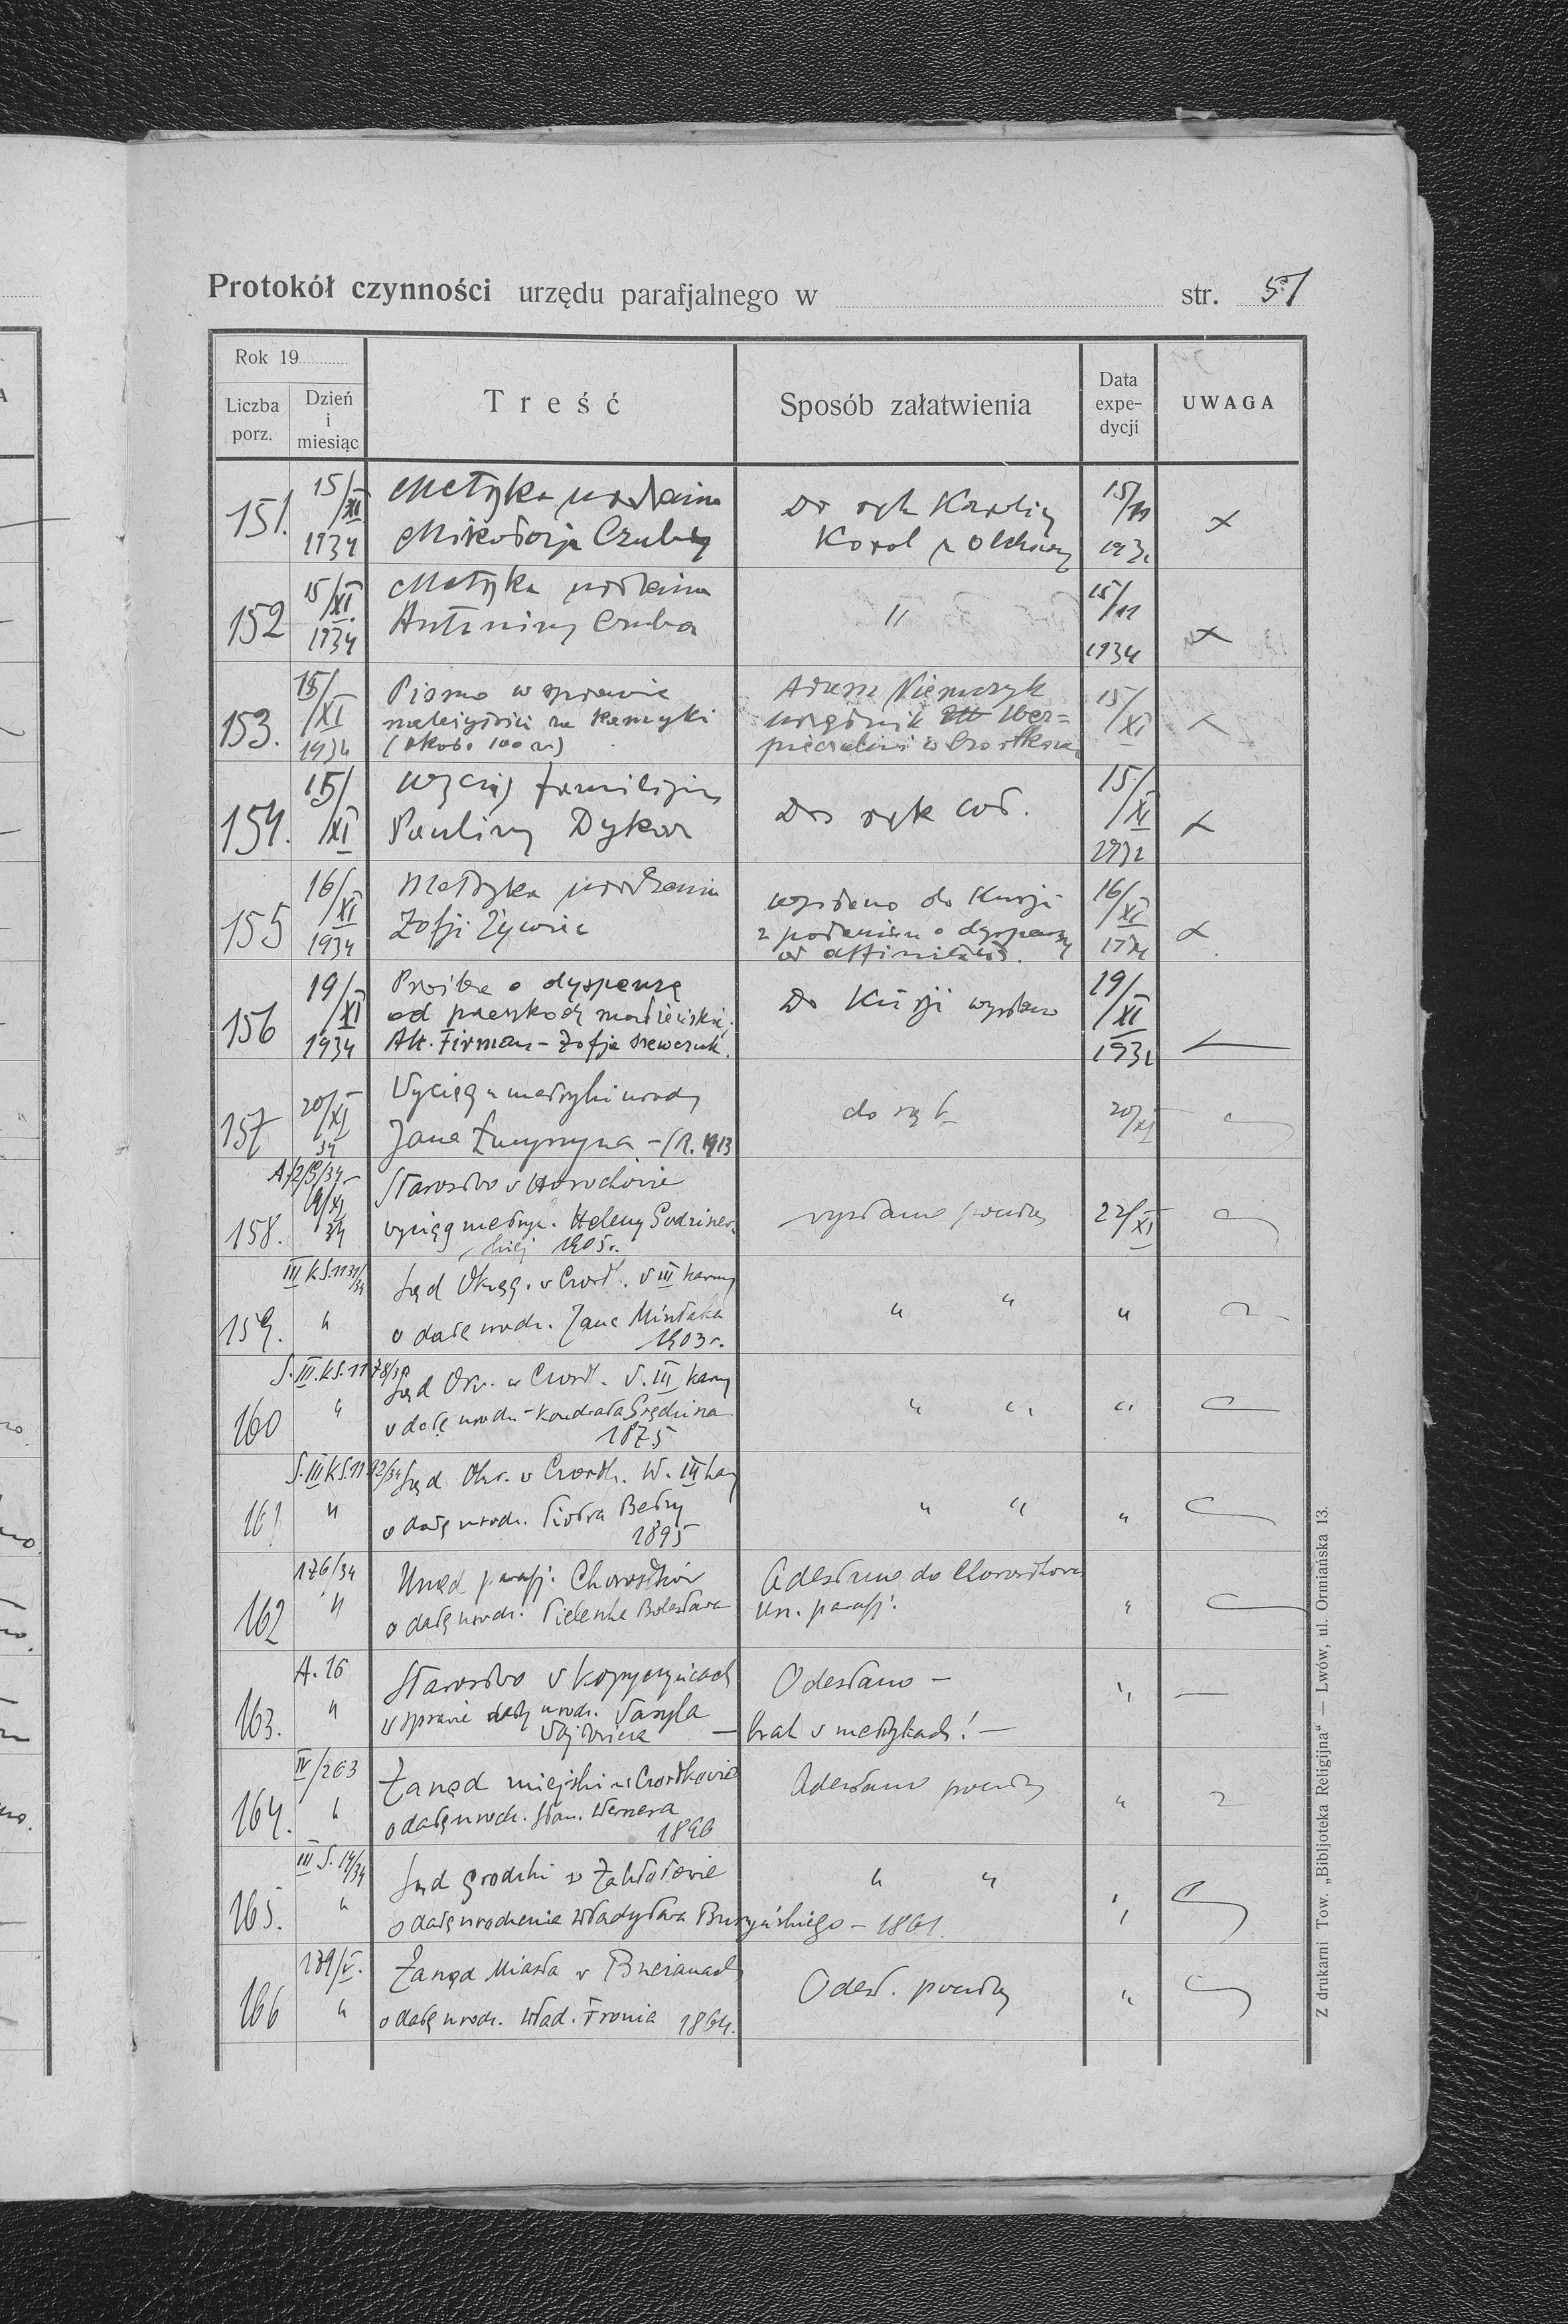 Protokół czynności urzędu parafjalnego w str. 51
Rok 19
Liczba porz.
Dzień i miesiąc
Treść
Sposób załatwienia
Data expedycji
UWAGA
151. 15/XI 1934
Metryka urodzenia
Mikołaja Czuby
Do rąk Karoliny
Korol z
15/11
193
152 15/XI. 1934
Metryka urodzenia
Antoniny Czuba
"
15/11
1934
153. 15/XI 1934
Pismo w sprawie
należytości za
(około 100 zł)
Adam Niemczyk
urzędnik Ubez=
pieczalni w Czortkowie
15/XI
154. 15/XI
Wyciąg familijny
Pauliny Dykas
Do rąk wł.
15/XI
155 16/XI 1934
Metryka urodzenia
Zofji Żywic
wysłano do Kurji
z podaniem o dyspensę
od affinitatis.
16/XI
156 19/XI 1934
Prośba o dyspensę
od przeszkody małżeńskiej
Alt. Firman - Zofja Szewczuk.
Do Kurji wysłano
19/XI
193
157 20/XI 34
Wyciąg z metryki urodz
Jana - (R. 1913
do rąk
20/XI
158. A/2/9/34 - 19/XI 34
Starostwo w Horochowie
wyciąg metryk. Heleny
skiej 1905 r.
wysłane pocztą
22/XI
159. III KS. 1131/34 "
Sąd Okręg. w Czortk. V III karny
o datę urodz. Jana
1903 r.
" "
"
160 S. III. KS. 1178/34 "
Sąd Okr. w Czort. V. III karny
o datę urodz - Kondrata
1875
" "
"
161 S. III KS. 1192/34 "
Sąd Okr. w Czortk. W. III kar
o datę urodz. Piotra Bedry
1895
" "
"
162 176/34 "
Urząd parafj. Chorostków
o datę urodz. Bolesława
Odesłane do Chorostkowa
Urz. parafj.
"
163. A. 16 "
Starostwo w Kopyczyńcach
w sprawie daty urodz. Wasyla
Wojtowicza
Odesłano -
- brak w metrykach! -
"
164. IV/263 "
Zarząd miejski w Czortkowie
o datę urodz. Stan. Wernera
1896
Odesłano pocztą
"
165. III S. 14/34 "
Sąd grodzki w
o datę urodzenia Władysława Buszyńskiego - 1861.
" "
"
166 139/V. "
Zarząd Miasta w Brzeżanach
o datę urodz. Wład. Fronia 1864.
Odesł. pocztą
"
Z drukarni Tow. „Bibljoteka Religijna" — Lwów, ul. Ormiańska 13.